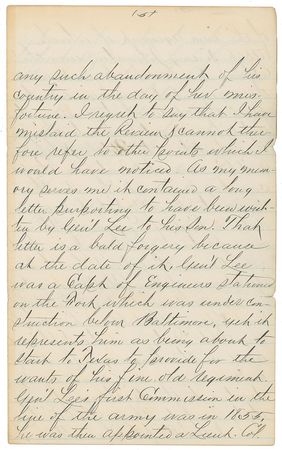 any such abandonment of his
country in the day of her mis-
fortune. I regret to say that I have
mislaid the Review & cannot there
fore refer to other points which I
would have noticed. As my mem
ory serves me it contained a long
letter purporting to have been writ-
ten by Gen'l Lee to his son. That
letter is a bald forgery because
at the date of it, Gen'l Lee
was a Capt of Engineers stationed
on the Work which was under con-
struction below Baltimore, yet it
represents him as being about to
start to Texas to provide for the
wants of his fine old regiment.
Gen'l Lee's first Commission in the
line of the army was in 1855,
he was then appointed a Lieut. Col.